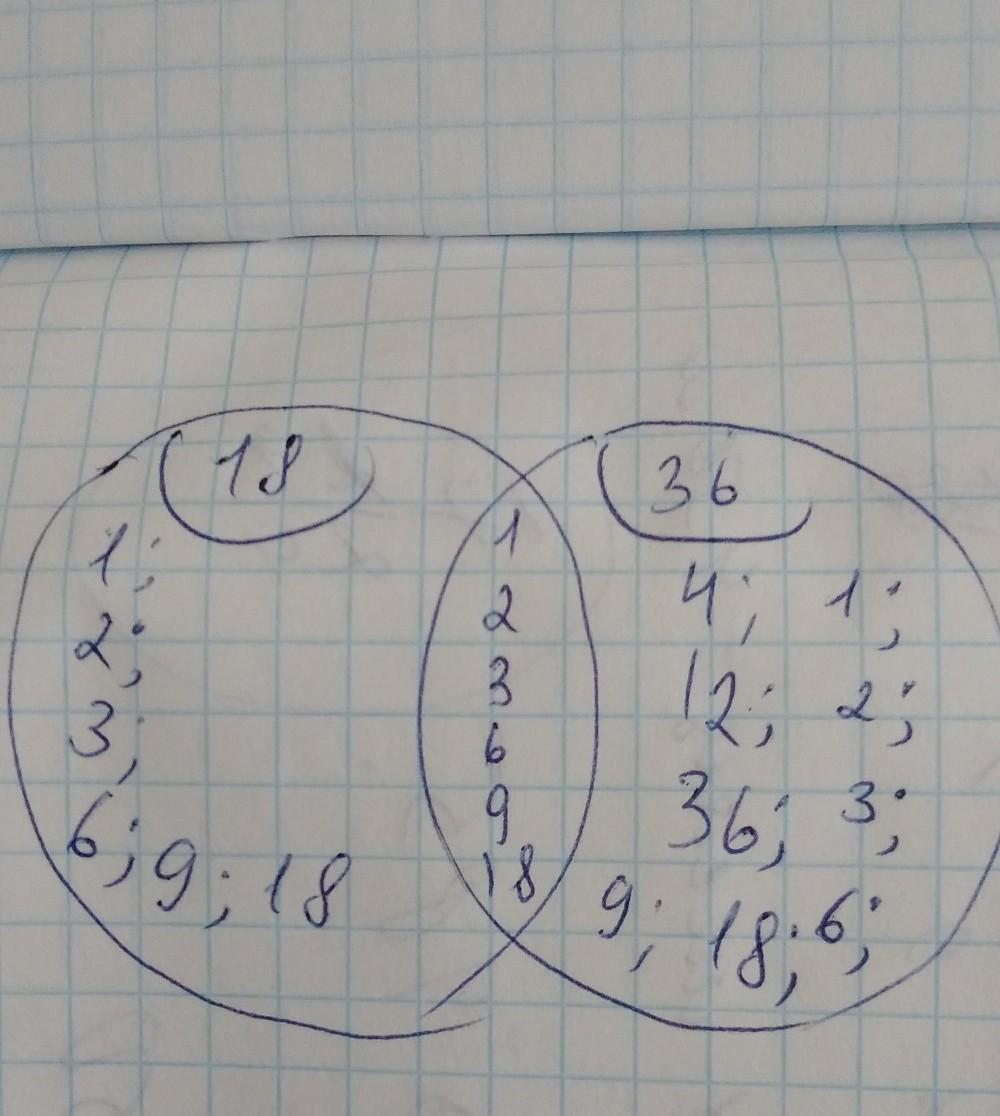 18
36
1;
2;
3;
6; 9; 18
1
2
3
6
9
18
4; 1;
12; 2;
36; 3;
9; 18; 6;